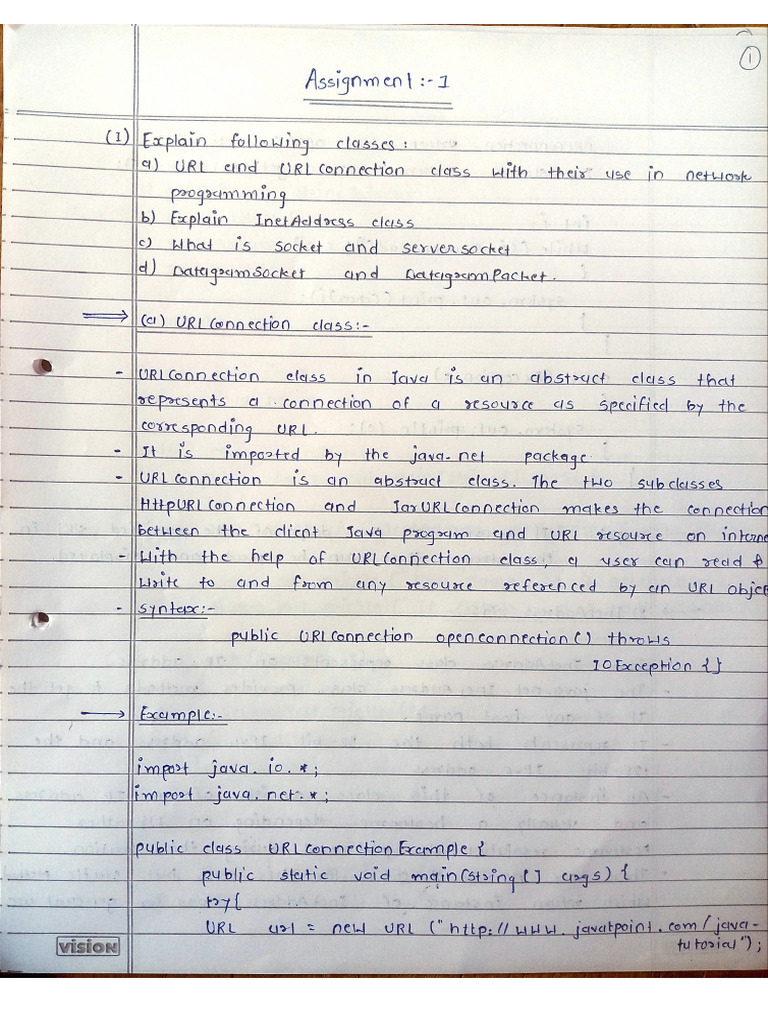 1
Assignment:- 1
(1) Explain following classes:
a) URL and URL connection class with their use in network
programming
b) Explain InetAddress class
c) What is socket and serversocket
d) DatagramSocket and DatagramPacket.
(a) URLConnection class:-
- URLConnection class in Java is an abstract class that
represents a connection of a resource as specified by the
corresponding URL.
- It is imported by the java.net package.
- URLConnection is an abstract class. The two subclasses
HttpURLConnection and JarURLConnection makes the connection
between the client Java program and URL resource on interne
- With the help of URLConnection class, a user can read &
write to and from any resource referenced by an URL objec
- Syntax:-
public URLConnection openconnection() throws
IOException {}
Example:-
import java.io.*;
import java.net.*;
public class URLConnectionExample {
public static void main(String [] args) {
try{
URL url = new URL ("http://www.javatpoint.com/java-
tutorial");
VISION